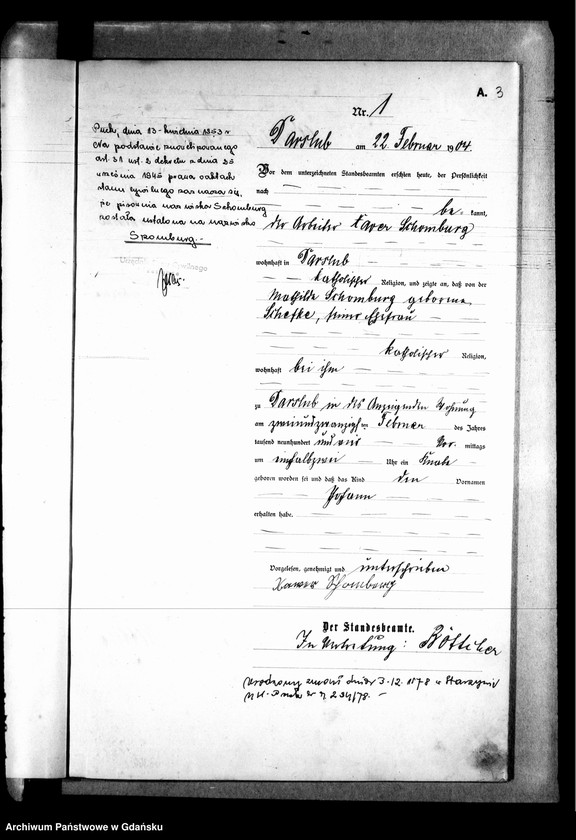 A. 3
Nr. 1
Darslub am 22 Februar 1904.
Vor dem unterzeichneten Standesbeamten erschien heute, der Persönlichkeit
nach
be kannt,
der Arbeiter Xaver Schomburg
wohnhaft in Darslub
katholischer Religion, und zeigte an, daß von der
Mathilde Schomburg geborene
Schefke, seiner Ehefrau
katholischer Religion,
wohnhaft bei ihm
zu Darslub in des Anzeigenden Wohnung
am zweiundzwanzigsten Februar des Jahres
tausend neunhundert und vier Vor mittags
um einhalbzwei Uhr ein Knabe
geboren worden sei und daß das Kind den Vornamen
Johann
erhalten habe.
Vorgelesen, genehmigt und unterschrieben
Xawer Schomburg
Der Standesbeamte.
In Vertretung: Böttcher
Puck, dnia 13 kwietnia 1953 r
Na podstawie
art. 31 ust. 2 dekretu z dnia 25
września 1945 prawo o aktach
stanu cywilnego zaznacza się,
że pisownia nazwiska Schomburg
została ustalona na nazwisko
Szomburg.-
Urodzony zmarł dnia 3.12.1978 w Starzynie
USC Puck Nr 234/78. -
Archiwum Państwowe w Gdańsku